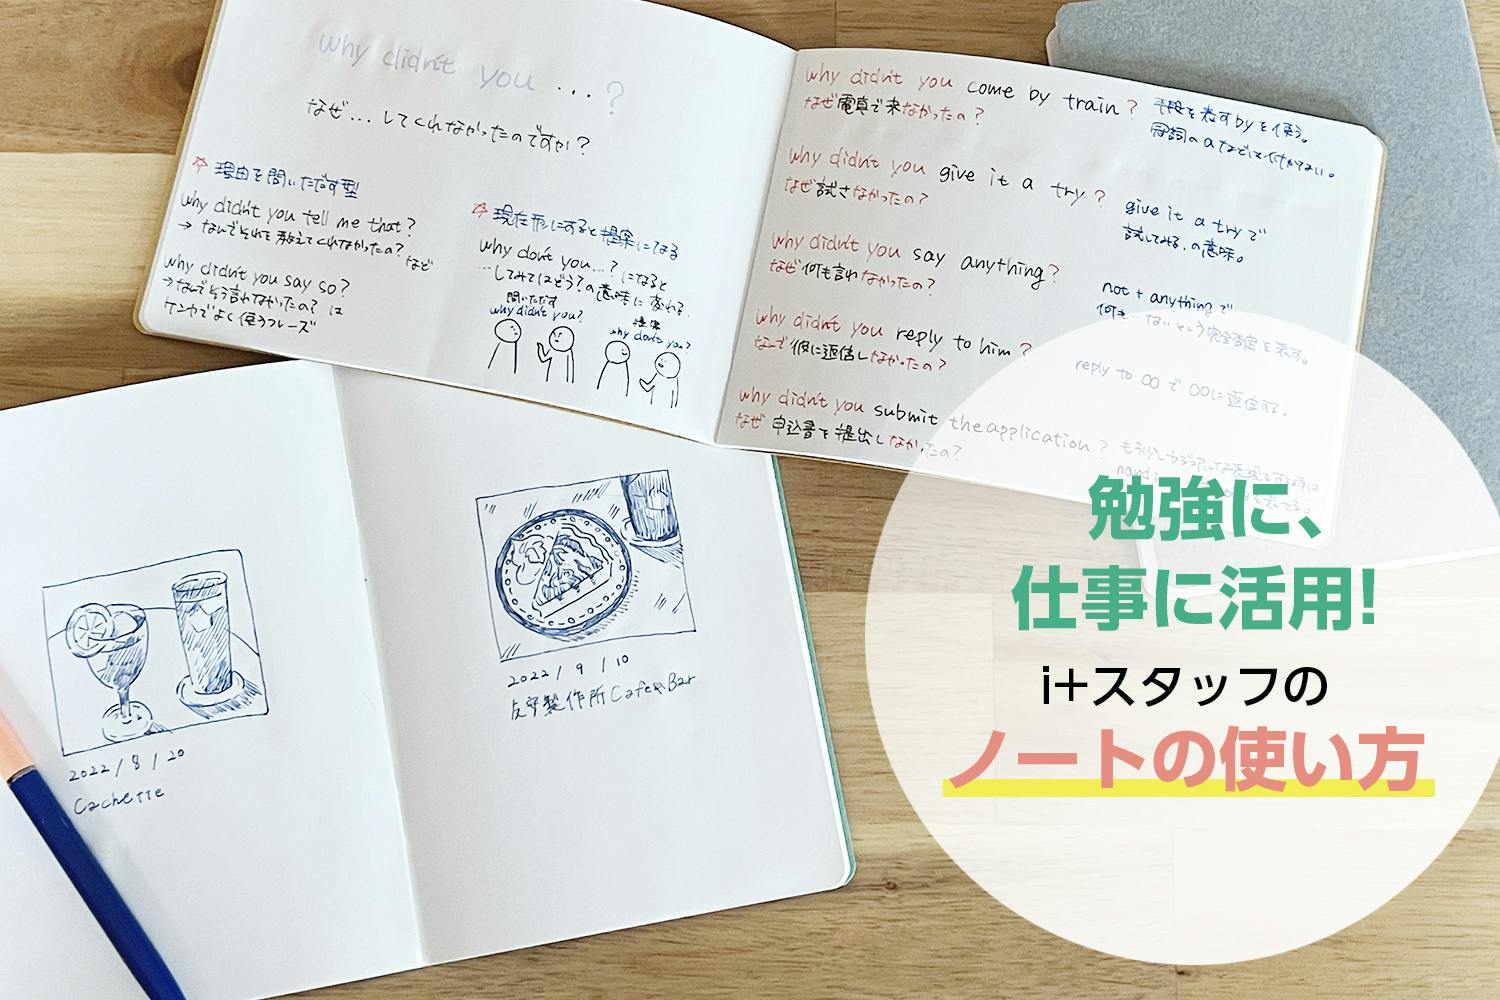 why didn't you ...?
なぜ...してくれなかったのですか?
☆理由を問いただす型
why didn't you tell me that?
→ なんでそれを教えてくれなかったの? など
why didn't you say so?
→なんでそう言わなかったの? は
ケンカでよく使うフレーズ
☆現在形にすると提案になる
why don't you...? になると
…してみてはどう?の意味に変わる.
問いただす
why didn't you?
提案
why don't you?
why didn't you come by train?
なぜ電車で来なかったの?
手段を表すbyを使う。
冠詞のaなどは付かない。
why didn't you give it a try?
なぜ試さなかったの?
give it a tryで
試してみる.の意味。
why didn't you say anything?
なぜ何も言わなかったの?
not + anythingで
何も…ないという完全否定を表す。
why didn't you reply to him?
なんで彼に返信しなかったの?
reply to ○○で○○に返信する。
why didn't you submit the application?
なぜ申込書を提出しなかったの?
2022/8/20
Cachette
2022/9/10
製作所Cafe&Bar
勉強に、
仕事に活用!
i+スタッフの
ノートの使い方